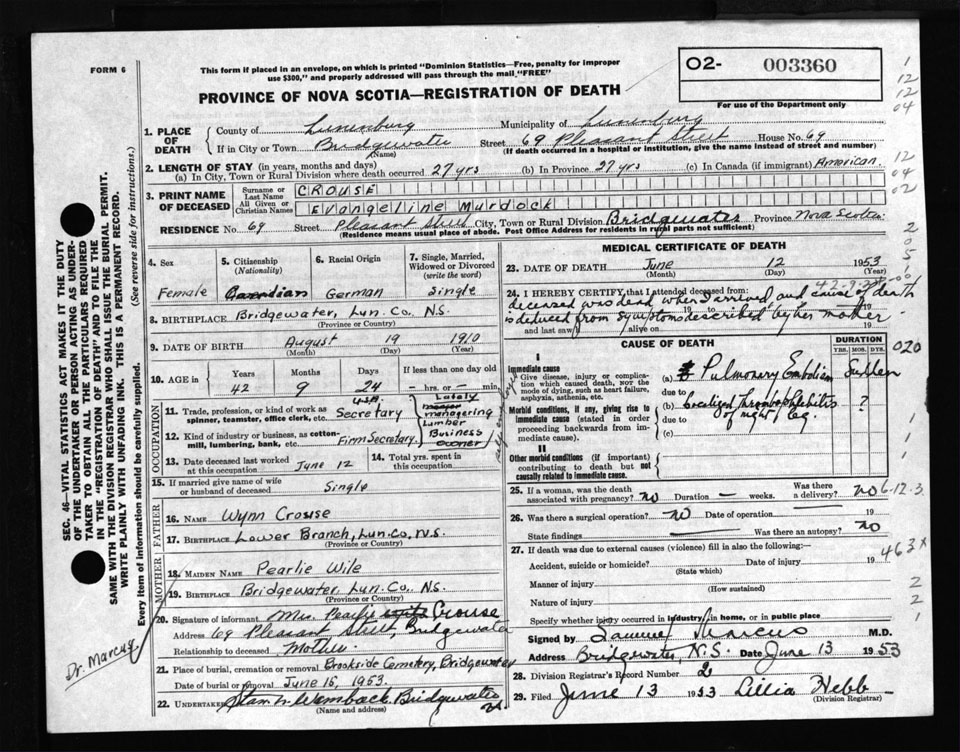 FORM 6
This form if placed in an envelope, on which is printed "Dominion Statistics—Free, penalty for improper
use $300," and properly addressed will pass through the mail "FREE"
O2- 003360
PROVINCE OF NOVA SCOTIA—REGISTRATION OF DEATH
For use of the Department only
1. PLACE OF DEATH
County of Lunenburg Municipality of Lunenburg
If in City or Town Bridgewater Street 69 Pleasant Street House No. 69
(Name) (If death occurred in a hospital or institution, give the name instead of street and number)
2. LENGTH OF STAY (in years, months and days)
(a) In City, Town or Rural Division where death occurred 27 yrs (b) In Province 27 yrs (c) In Canada (if immigrant) American
3. PRINT NAME OF DECEASED
Surname or Last Name CROUSE
All Given or Christian Names Evangeline Murdock
RESIDENCE No. 69 Street Pleasant Street City, Town or Rural Division Bridgewater Province Nova Scotia
(Residence means usual place of abode. Post Office Address for residents in rural parts not sufficient)
4. Sex Female
5. Citizenship (Nationality) Canadian
6. Racial Origin German
7. Single, Married, Widowed or Divorced (write the word) Single
8. BIRTHPLACE Bridgewater, Lun. Co. N.S.
(Province or Country)
9. DATE OF BIRTH August 19 1910
(Month) (Day) (Year)
10. AGE in Years 42 Months 9 Days 24 If less than one day old — hrs. or — min.
OCCUPATION
11. Trade, profession, or kind of work as spinner, teamster, office clerk, etc. Secretary
12. Kind of industry or business, as cotton mill, lumbering, bank, etc. Firm Secretary
Lately
managering
Lumber
Business
owner
13. Date deceased last worked at this occupation June 12
14. Total yrs. spent in this occupation
15. If married give name of wife or husband of deceased Single
FATHER
16. NAME Wynn Crouse
17. BIRTHPLACE Lower Branch, Lun. Co. N.S.
(Province or Country)
MOTHER
18. MAIDEN NAME Pearlie Wile
19. BIRTHPLACE Bridgewater, Lun. Co. N.S.
(Province or Country)
20. Signature of informant Mrs. Pearlie Crouse
Address 69 Pleasant Street, Bridgewater
Relationship to deceased Mother
21. Place of burial, cremation or removal Brookside Cemetery, Bridgewater
Date of burial or removal June 15, 1953.
22. UNDERTAKER Stan N. Wamback Bridgewater
(Name and address)
MEDICAL CERTIFICATE OF DEATH
23. DATE OF DEATH June 12 1953
(Month) (Day) (Year)
24. I HEREBY CERTIFY, that I attended deceased from:
deceased was dead when I arrived and cause of death
is deduced from symptoms described by her mother
and last saw alive on 19
CAUSE OF DEATH
DURATION
YRS. MOS. DYS.
I
Immediate cause
Give disease, injury or complication which caused death, not the mode of dying, such as heart failure, asphyxia, asthenia, etc.
(a) Pulmonary Embolism Sudden
due to
Morbid conditions, if any, giving rise to immediate cause (stated in order proceeding backwards from immediate cause).
(b) Localized Thrombophlebitis ?
due to of right leg
(c)
II
Other morbid conditions (if important) contributing to death but not causally related to immediate cause.
25. If a woman, was the death associated with pregnancy? no Duration — weeks. Was there a delivery? no
26. Was there a surgical operation? no Date of operation 19
State findings Was there an autopsy? no
27. If death was due to external causes (violence) fill in also the following:—
Accident, suicide or homicide? Date of injury 19
(State which)
Manner of injury
(How sustained)
Nature of injury
Specify whether injury occurred in industry, in home, or in public place
Signed by Samuel Marcus M.D.
Address Bridgewater, N.S. Date June 13 1953
28. Division Registrar's Record Number 2
29. Filed June 13 1953 Lillia Hebb
(Division Registrar)
SEC. 46—VITAL STATISTICS ACT MAKES IT THE DUTY
OF THE UNDERTAKER OR PERSON ACTING AS UNDERTAKER
TO OBTAIN ALL THE PARTICULARS REQUIRED
IN THE "REGISTRATION OF DEATH" AND TO FILE THE
SAME WITH THE DIVISION REGISTRAR WHO SHALL ISSUE THE BURIAL PERMIT.
WRITE PLAINLY WITH UNFADING INK. THIS IS A PERMANENT RECORD.
Every item of information should be carefully supplied. (See reverse side for instructions.)
Dr. Marcus
1
12
12
04
12
04
02
2
0
5
020
1
1
1
6-12-3
463x
2
2
1